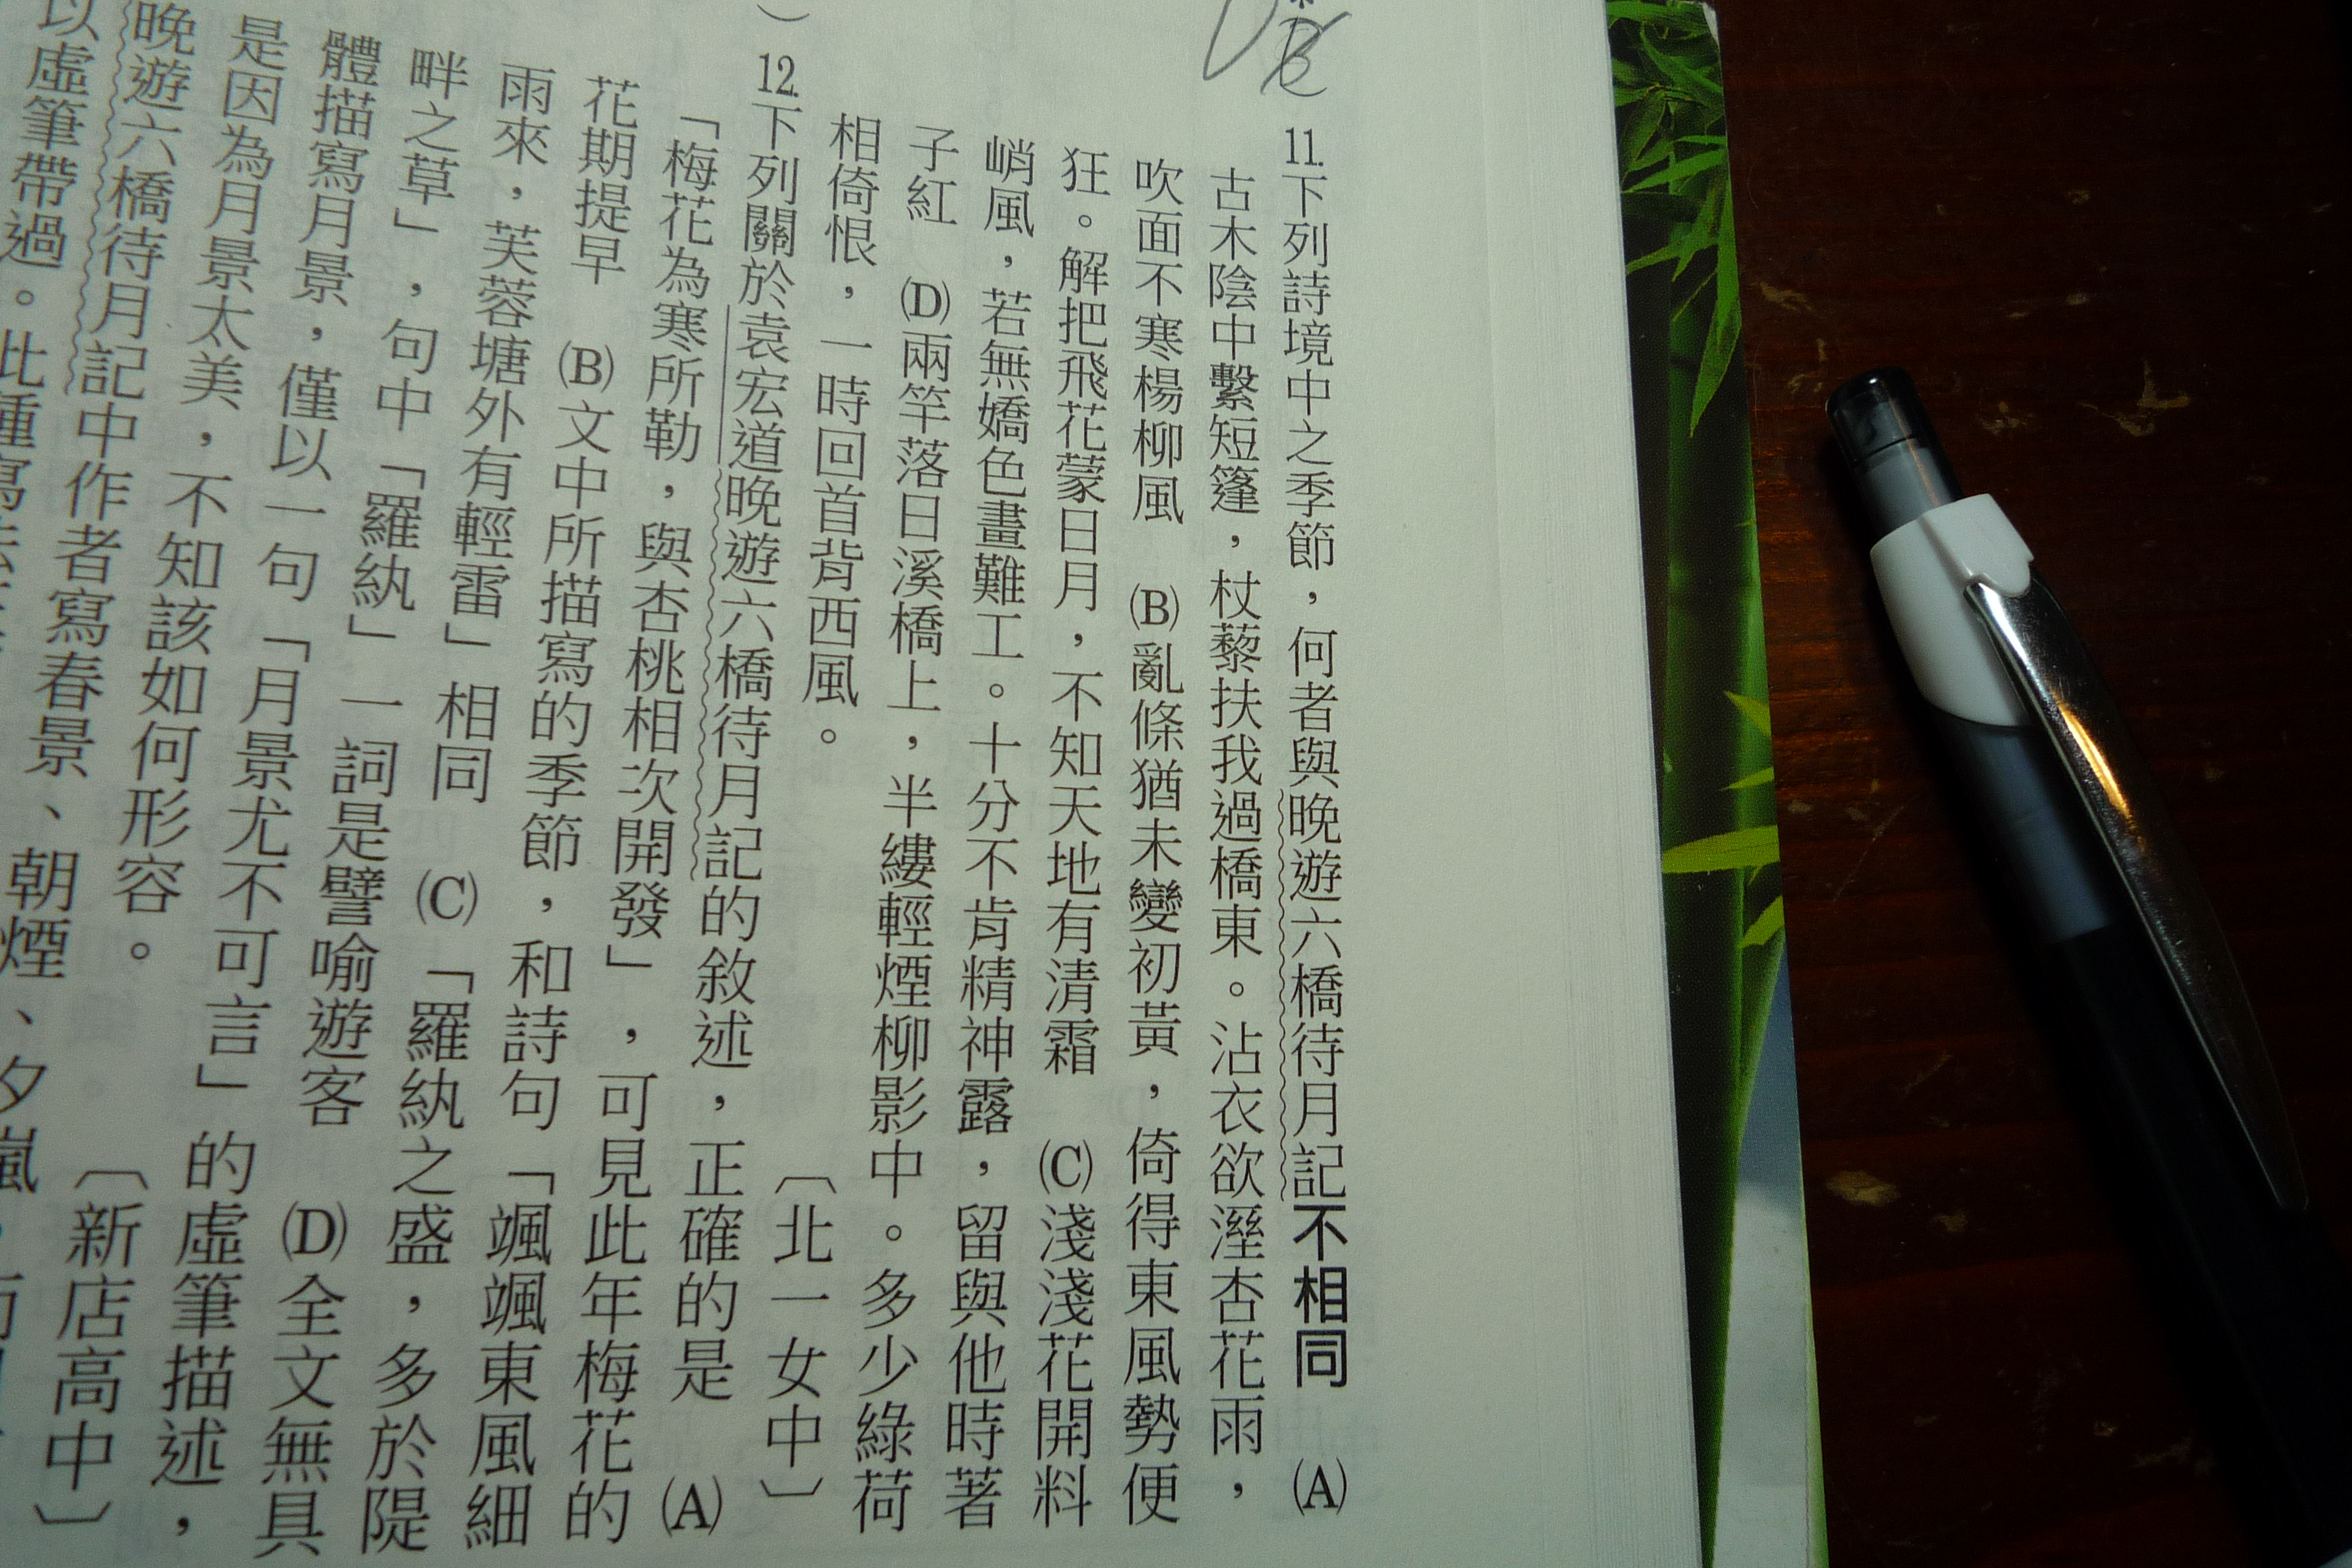 11.下列詩境中之季節，何者與晚遊六橋待月記不相同　(A)
古木陰中繫短篷，杖藜扶我過橋東。沾衣欲溼杏花雨，
吹面不寒楊柳風　(B)亂條猶未變初黃，倚得東風勢便
狂。解把飛花蒙日月，不知天地有清霜　(C)淺淺花開料
峭風，若無嬌色畫難工。十分不肯精神露，留與他時著
子紅　(D)兩竿落日溪橋上，半縷輕煙柳影中。多少綠荷
相倚恨，一時回首背西風。〔北一女中〕
12.下列關於袁宏道晚遊六橋待月記的敘述，正確的是　(A)
「梅花為寒所勒，與杏桃相次開發」，可見此年梅花的
花期提早　(B)文中所描寫的季節，和詩句「颯颯東風細
雨來，芙蓉塘外有輕雷」相同　(C)「羅紈之盛，多於隄
畔之草」，句中「羅紈」一詞是譬喻遊客　(D)全文無具
體描寫月景，僅以一句「月景尤不可言」的虛筆描述，
是因為月景太美，不知該如何形容。〔新店高中〕
晚遊六橋待月記中作者寫春景、朝煙、夕嵐，
以虛筆帶過。此種寫法